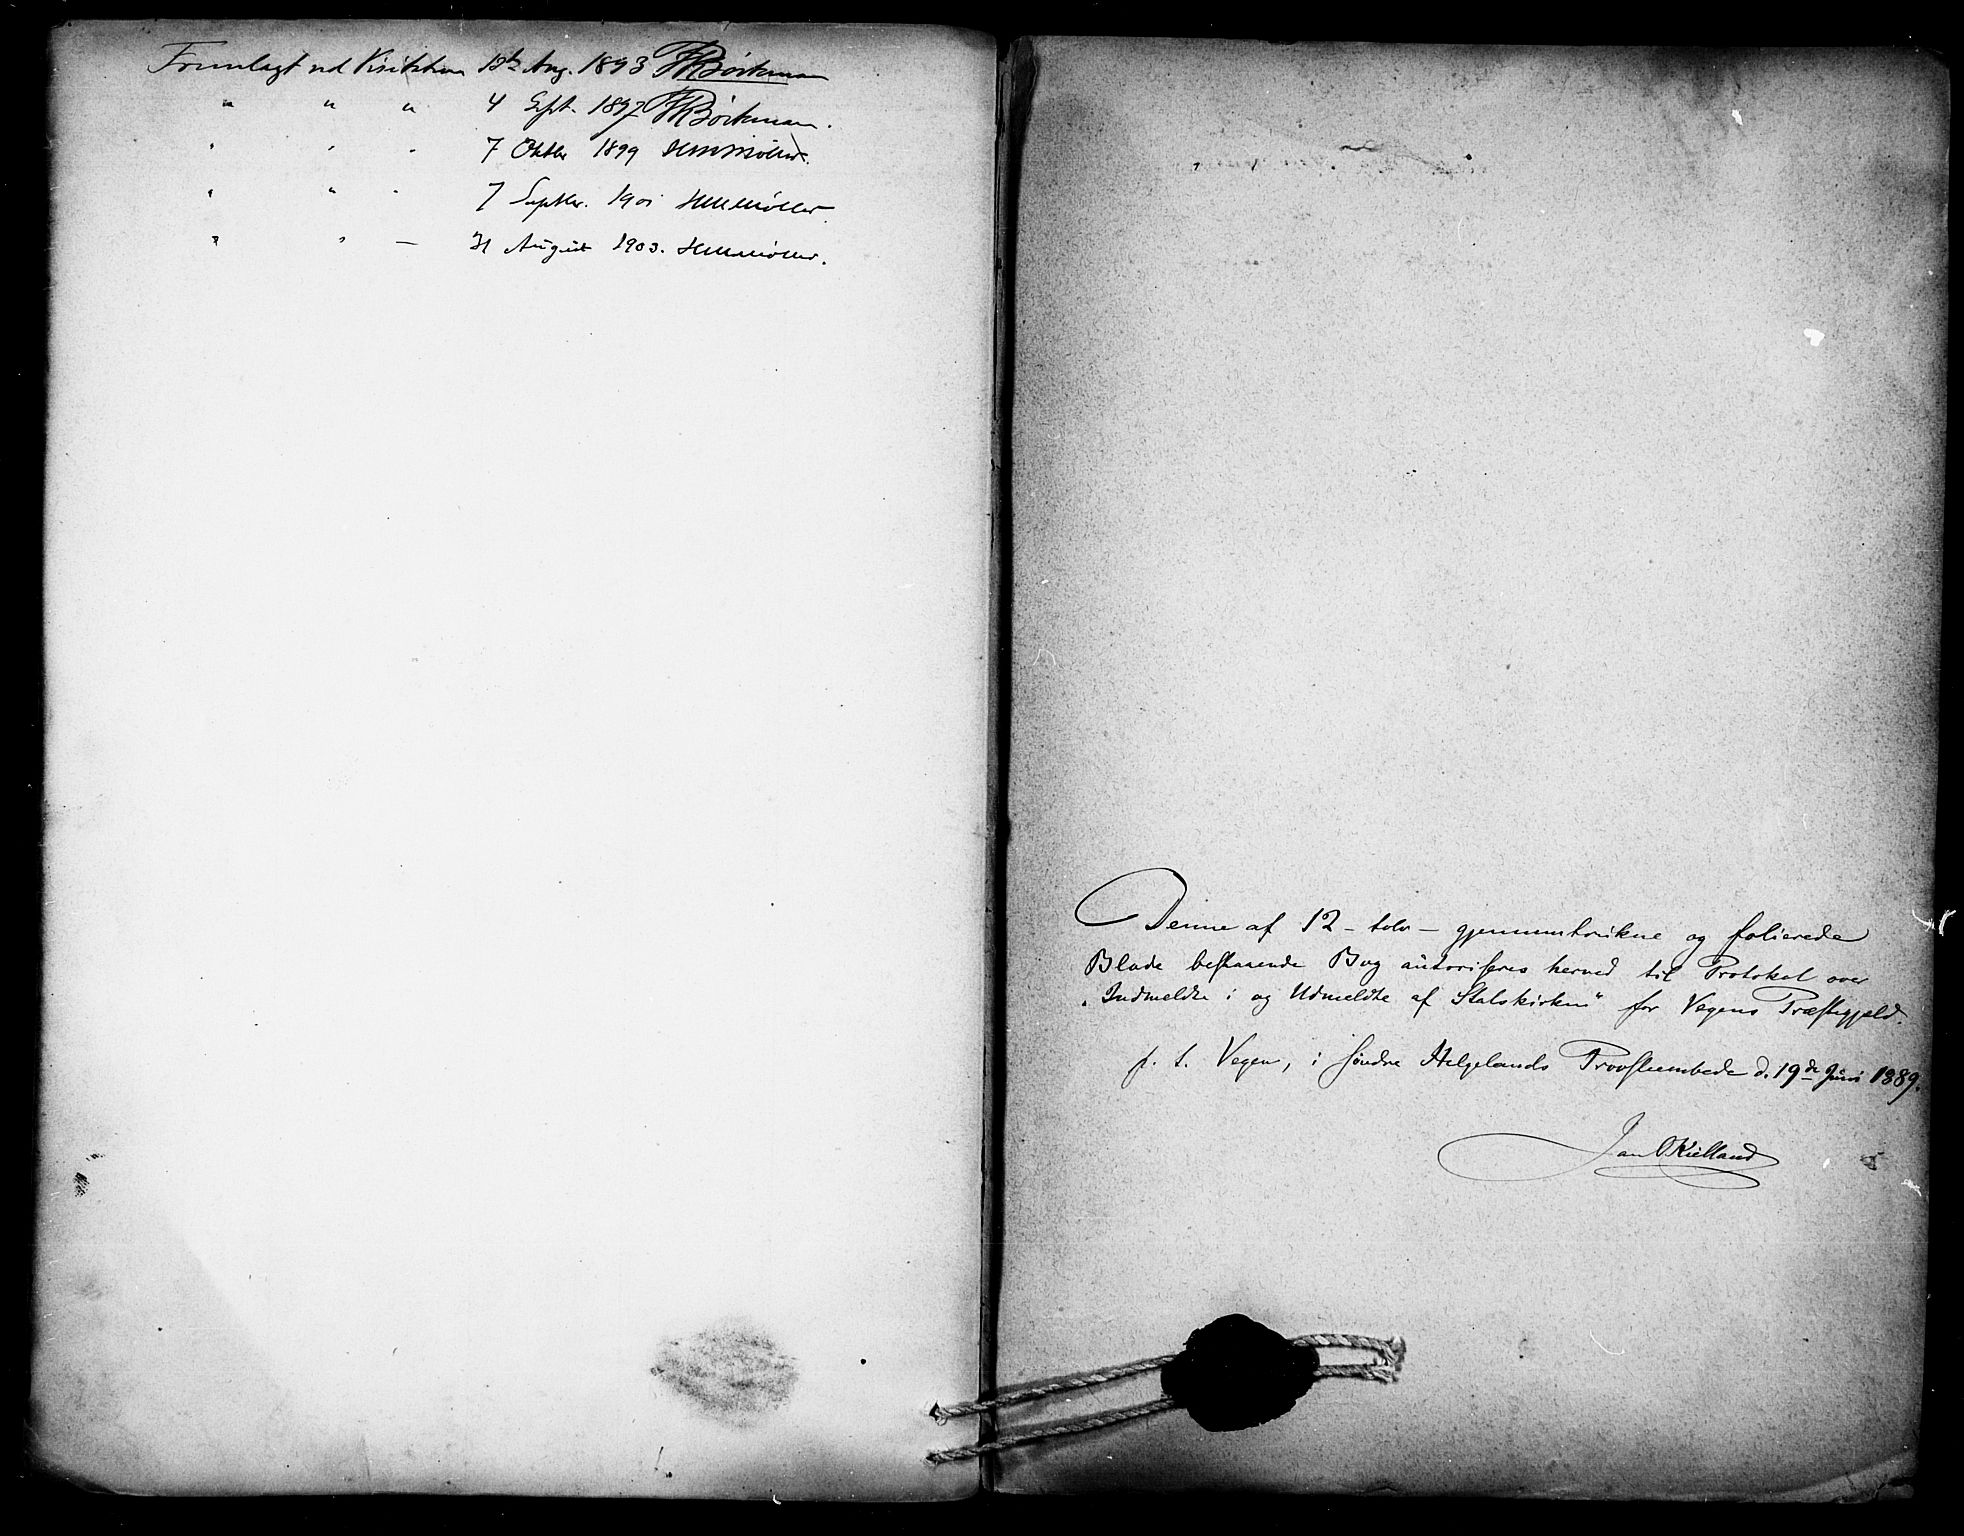 Fremlagt ved Visitation 12te Aug. 1893 Bøckman
" " " 4 Sept. 1897 Bøckman.
" " " 7 Oktbr 1899 Møller.
" " " 7 Septbr. 1901 Møller.
" " — 31 August 1903. Møller.
Denne af 12 – tolv – gjennemtrukne og folierede
Blade bestaaende Bog autoriseres herved til Protokol over
"Indmeldte i og Udmeldte af Statskirken" for Vegens Præstegjeld.
p. t. Vegen, i søndre Helgelands Provstiembede d. 19de Juni 1889.
Jan O Kielland